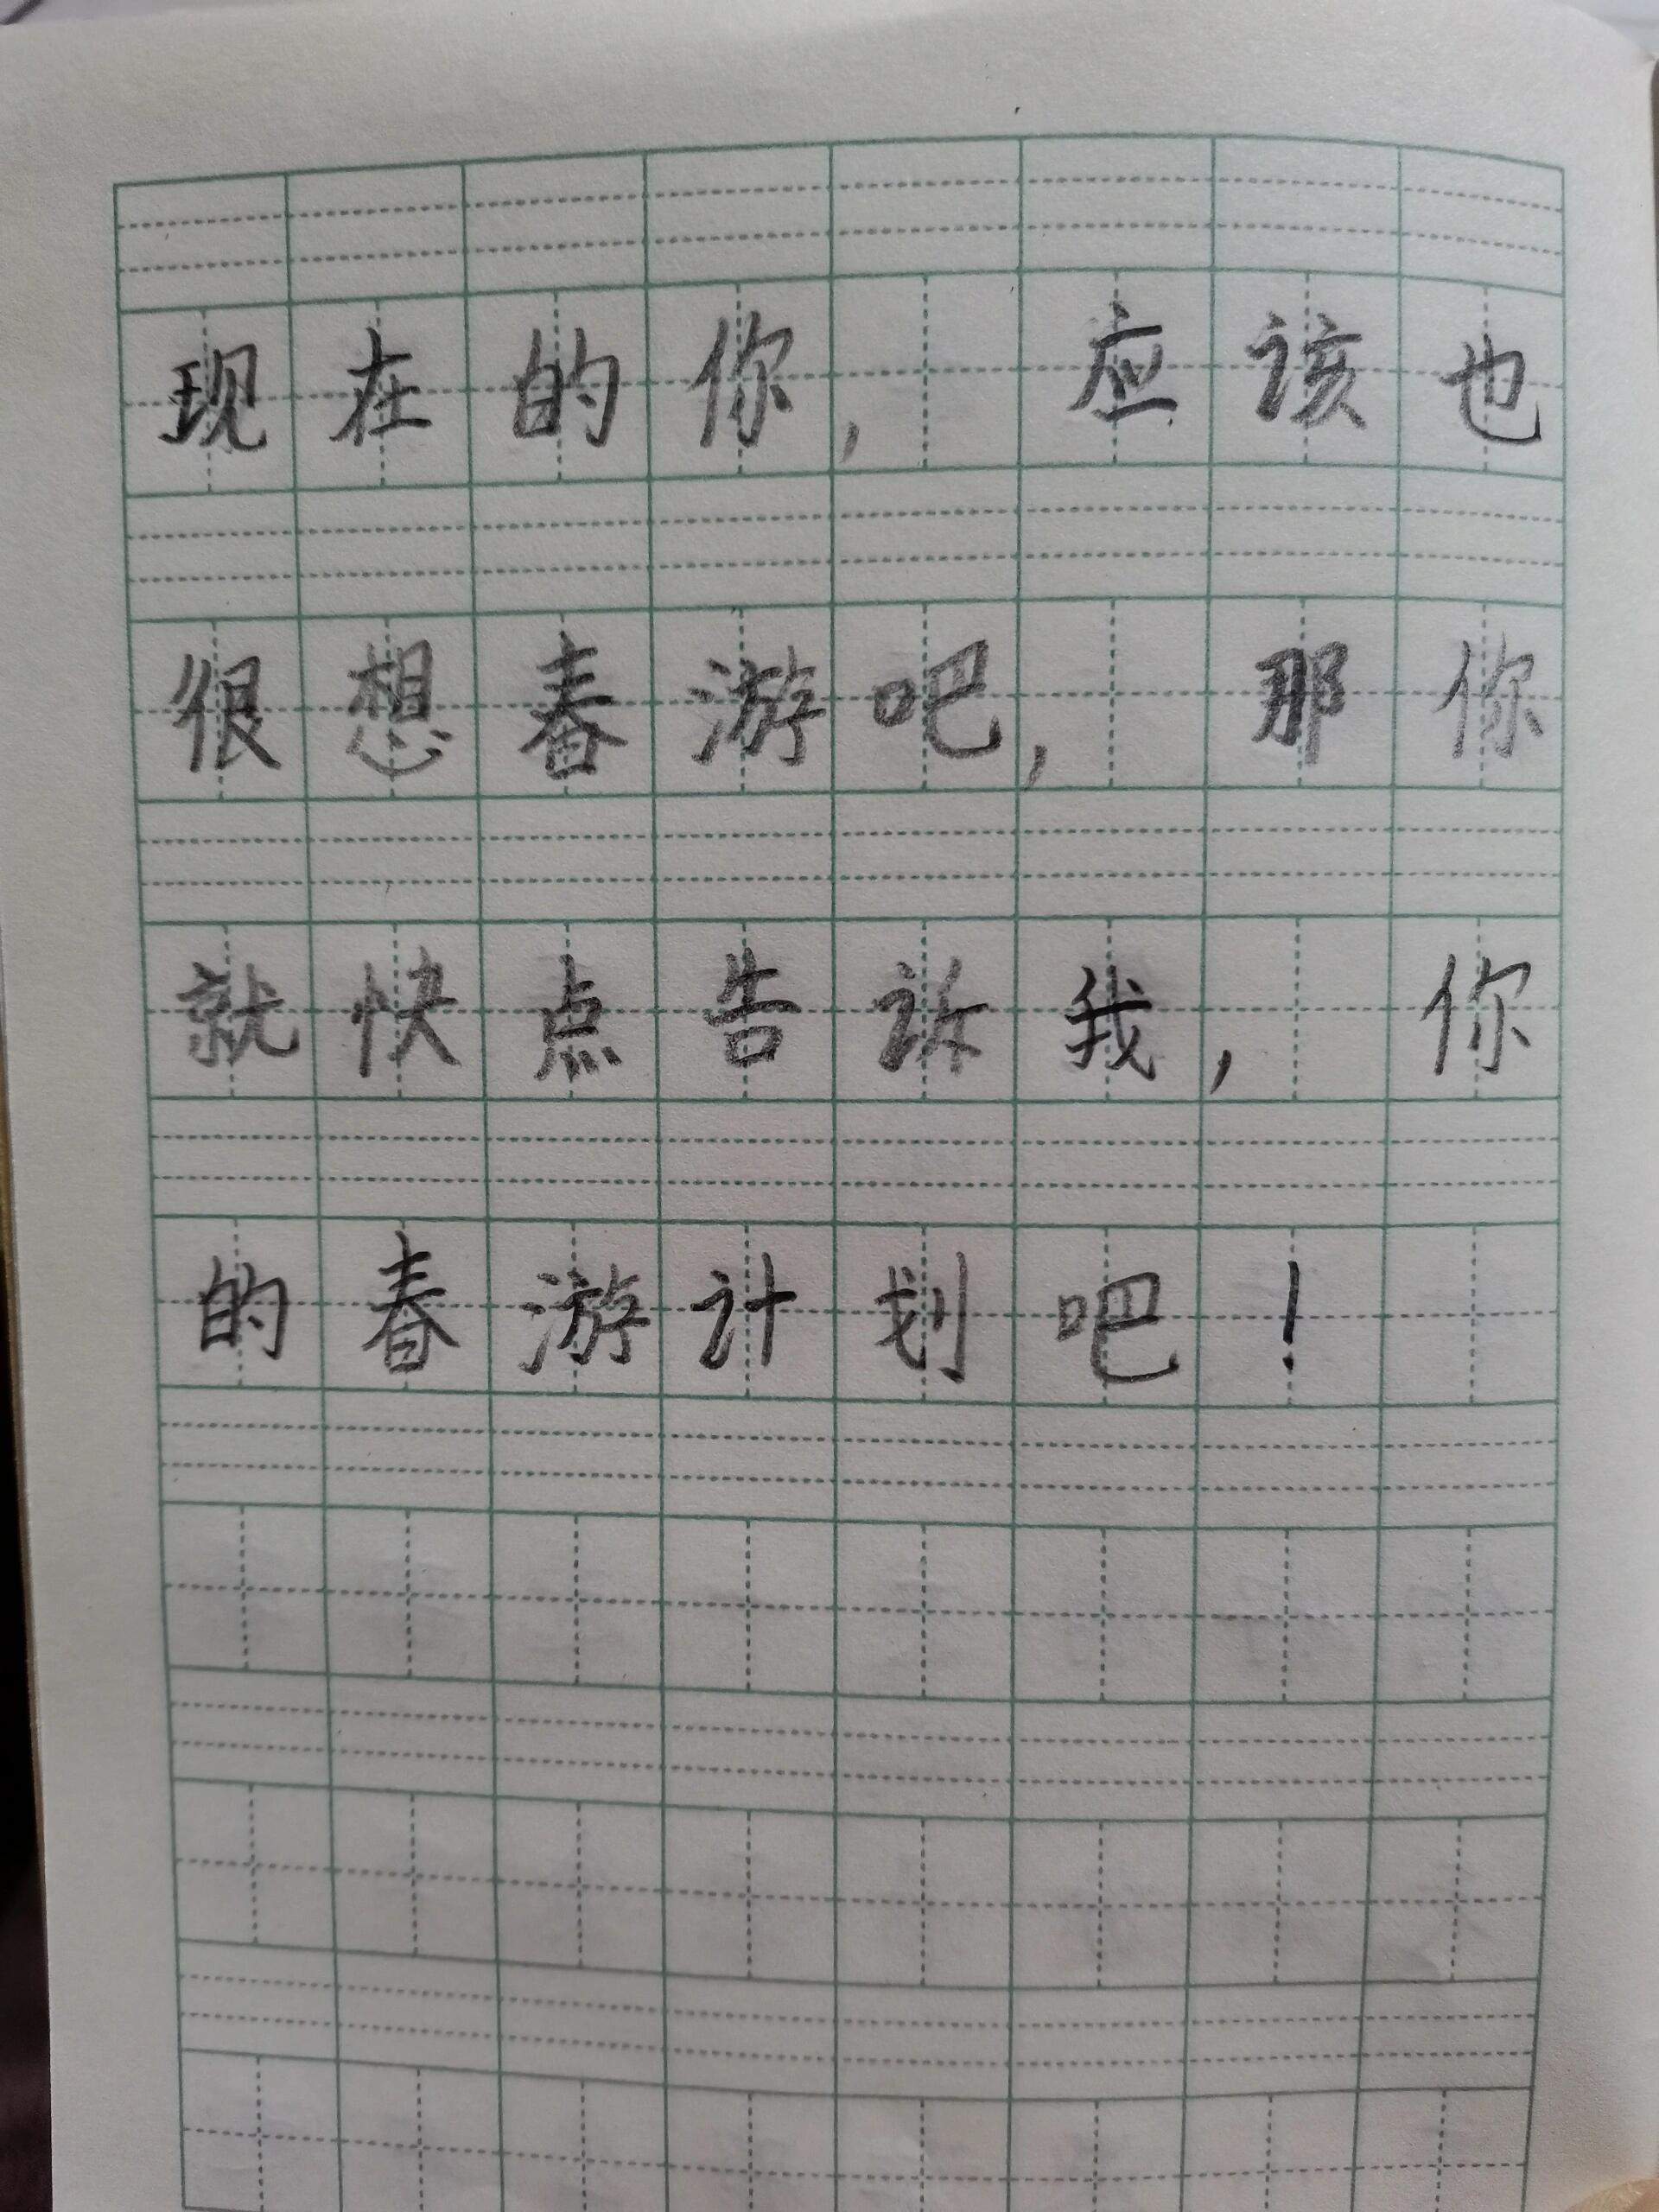 现在的你，应该也
很想春游吧，那你
就快点告诉我，你
的春游计划吧！